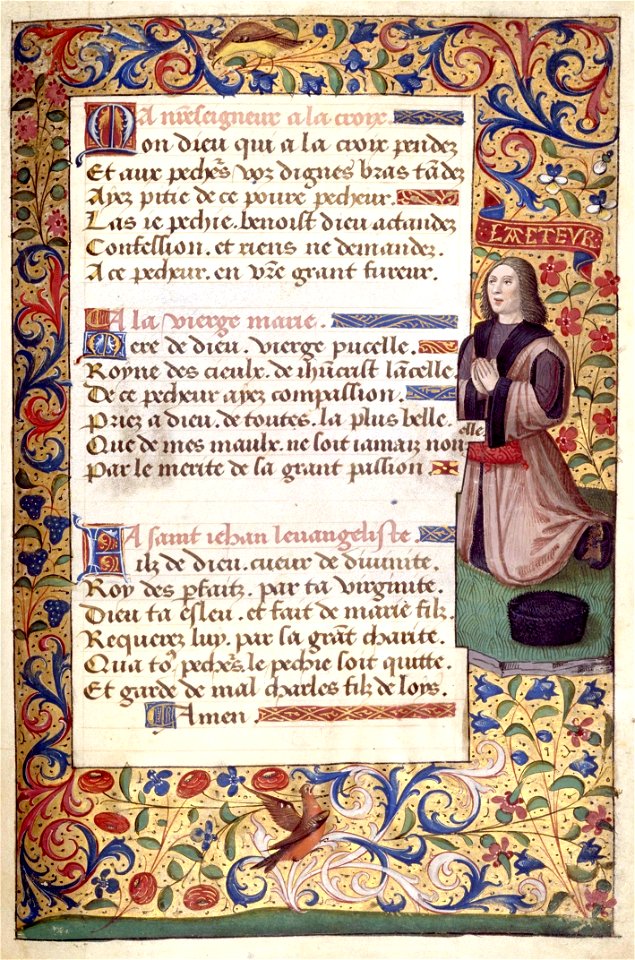 A nr̄eseigneur a la croix.
Mon dieu qui a la croix pendez
Et aux pechēs voz dignes bras tādez
Ayez pitie de ce poure pecheur.
Las ie pechie. benoist dieu actandez
Confession. et riens ne demandez.
A ce pecheur. en vr̄e grant fureur.
LACTEVR
A la vierge marie.
Mere de dieu. vierge pucelle.
Royne des cieulx. de ihūcrist lācelle.
De ce pecheur ayez compassion.
Priez a dieu. de toutes. la plus belle.
Que de mes maulx. ne soit iamaiz nouuelle
Par le merite de sa grant passion
A saint iehan leuangeliste.
Filz de dieu. cueur de diuinite.
Roy des pr̄faitz. par ta virginite.
Dieu ta esleu. et fait de marie filz.
Requerez luy. par sa grāt charite.
Qua to⁹ pechēs. le pechie soit quitte.
Et garde de mal charles filz de loys.
Amen